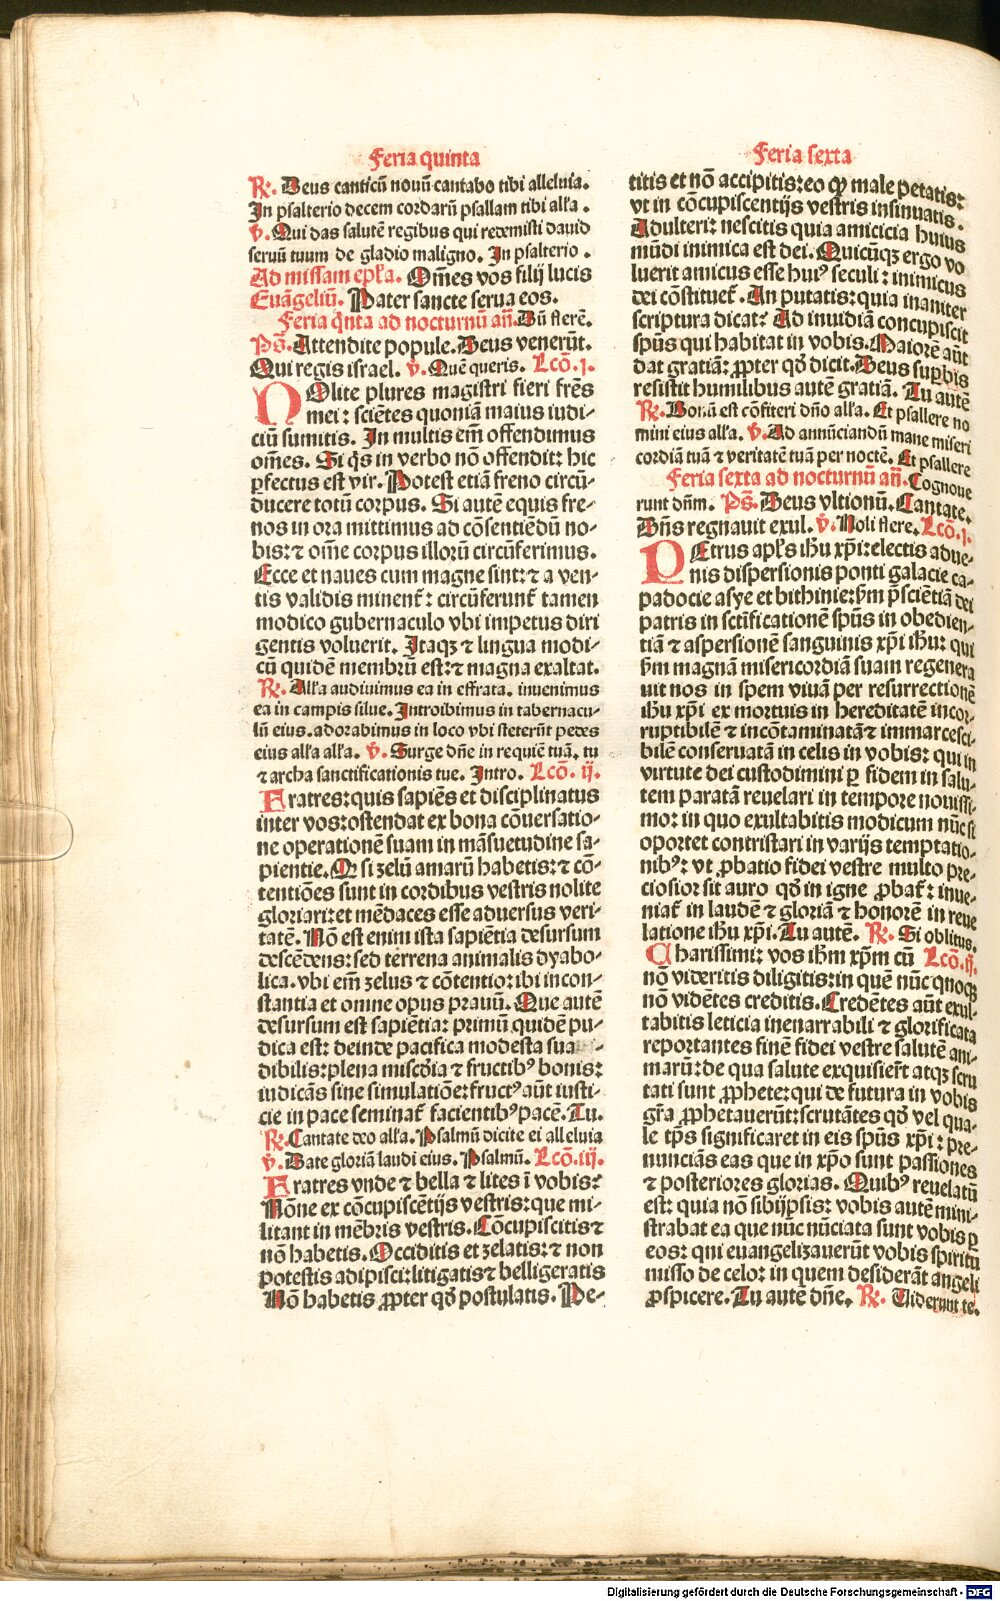 Feria quinta
R. Deus canticū nouū cantabo tibi alleluia.
In psalterio decem cordarū psallam tibi all'a .
v. Qui das salutē regibus qui redemisti dauid
seruū tuum de gladio maligno. In psalterio .
Ad missam ep̄l'a. Om̄es vos filij lucis
Euāgeliū. Pater sancte serua eos.
Feria q̄nta ad nocturnū an̄. Dū flerē.
Ps̄. Attendite popule. Deus venerūt.
Qui regis israel. v. Quē queris. Lcō. j.
NOlite plures magistri fieri fr̄es
mei: sciētes quoniā maius iudi-
ciū sumitis. In multis em̄ offendimus
om̄es. Si q̄s in verbo nō offendit: hic
ꝑfectus est vir. Potest etiā freno circū-
ducere totū corpus. Si autē equis fre-
nos in ora mittimus ad cōsentiēdū no-
bis: ⁊ om̄e corpus illorū circūferimus.
Ecce et naues cum magne sint: ⁊ a ven-
tis validis minent᷑: circūferunt᷑ tamen
modico gubernaculo vbi impetus diri
gentis voluerit. Itaqꝫ ⁊ lingua modi-
cū quidē membrū est: ⁊ magna exaltat.
R. All'a audiuimus ea in effrata. inuenimus
ea in campis silue. Introibimus in tabernacu-
lū eius. adorabimus in loco vbi steterūt pedes
eius all'a all'a. v. Surge dn̄e in requiē tuā. tu
⁊ archa sanctificationis tue. Intro. Lcō. ij.
Fratres: quis sapiēs et disciplinatus
inter vos: ostendat ex bona cōuersatio-
ne operationē suam in māsuetudine sa-
pientie. Q si zelū amarū habetis: ⁊ cō-
tentiōes sunt in cordibus vestris nolite
gloriari: et mēdaces esse aduersus veri-
tatē. Nō est enim ista sapiētia desursum
descēdens: sed terrena animalis dyabo-
lica. vbi em̄ zelus ⁊ cōtentio: ibi incon-
stantia et omne opus prauū. Que autē
desursum est sapiētia: primū quidē pu-
dica est: deinde pacifica modesta sua-
dibilis: plena misc̄dia ⁊ fructibꝰ bonis:
iudicās sine simulatiōe: fructꝰ aūt iusti-
cie in pace seminat᷑ facientibꝰ pacē. Tu.
R. Cantate deo all'a. Psalmū dicite ei alleluia
v. Date gloriā laudi eius. Psalmū. Lcō. iij.
Fratres vnde ⁊ bella ⁊ lites ī vobis:
Nōne ex cōcupiscētijs vestris: que mi-
litant in mēbris vestris. Cōcupiscitis ⁊
nō habetis. Occiditis et zelatis: ⁊ non
potestis adipisci: litigatis ⁊ belligeratis
Nō habetis ꝓpter qd̄ postulatis. Pe-
Feria sexta
titis et nō accipitis: eo ꝙ male petatis:
vt in cōcupiscentijs vestris insinuatis.
Adulteri: nescitis quia amicicia huius
mūdi inimica est dei. Quicūqꝫ ergo vo
luerit amicus esse huiꝰ seculi: inimicus
dei cōstituet᷑. An putatis: quia inaniter
scriptura dicat: Ad inuidiā concupiscit
spūs qui habitat in vobis. Maiorē aūt
dat gratiā: ꝓpter qd̄ dicit. Deus supbis
resistit humilibus autē gratiā. Tu autē
R. Bonū est cōfiteri dn̄o all'a. Et psallere no
mini eius all'a. v. Ad annūciandū mane miseri
cordiā tuā ⁊ veritatē tuā per noctē. Et psallere
Feria sexta ad nocturnū an̄. Cognoue
runt dn̄m. Ps̄. Deus vltionū. Cantate.
Dn̄s regnauit exul. v. Noli flere. Lcō. j.
PEtrus apl's ihū xp̄i: electis adue-
nis dispersionis ponti galacie ca-
padocie asye et bithinie: s̄m p̄sciētiā dei
patris in sctificationē spūs in obedien-
tiā ⁊ aspersionē sanguinis xp̄i ihū: qui
s̄m magnā misericordiā suam regenera
uit nos in spem viuā per resurrectionē
ihū xp̄i ex mortuis in hereditatē incor-
ruptibilē ⁊ incōtaminatā ⁊ immarcesci-
bilē conseruatā in celis in vobis: qui in
virtute dei custodimini ꝑ fidem in salu-
tem paratā reuelari in tempore nouissi-
mo: in quo exultabitis modicum nūc si
oportet contristari in varijs temptatio-
nibꝰ: vt ꝓbatio fidei vestre multo pre-
ciosior sit auro qd̄ in igne ꝓbat᷑: inue-
niat᷑ in laudē ⁊ gloriā ⁊ honorē in reue
latione ihū xp̄i. Tu autē. R. Si oblitus.
Charissimi: vos ihm̄ xp̄m cū Lcō. ij.
nō videritis diligitis: in quē nūc qnoqꝫ
nō vidētes creditis. Credētes aūt exul-
tabitis leticia inenarrabili ⁊ glorificata
reportantes finē fidei vestre salutē ani-
marū: de qua salute exquisierūt atqꝫ scru
tati sunt ꝓphete: qui de futura in vobis
gr̄a ꝓphetauerūt: scrutātes qd̄ vel qua-
le tp̄s significaret in eis spūs xp̄i: pre-
nunciās eas que in xp̄o sunt passiones
⁊ posteriores glorias. Quibꝰ reuelatū
est: quia nō sibijpsis: vobis autē mini-
strabat ea que nūc nūciata sunt vobis ꝑ
eos: qui euangelizauerūt vobis spiritu
misso de celo: in quem desiderāt angeli
ꝓspicere. Tu autē dn̄e. R. Viderunt te.
Digitalisierung gefördert durch die Deutsche Forschungsgemeinschaft - DFG